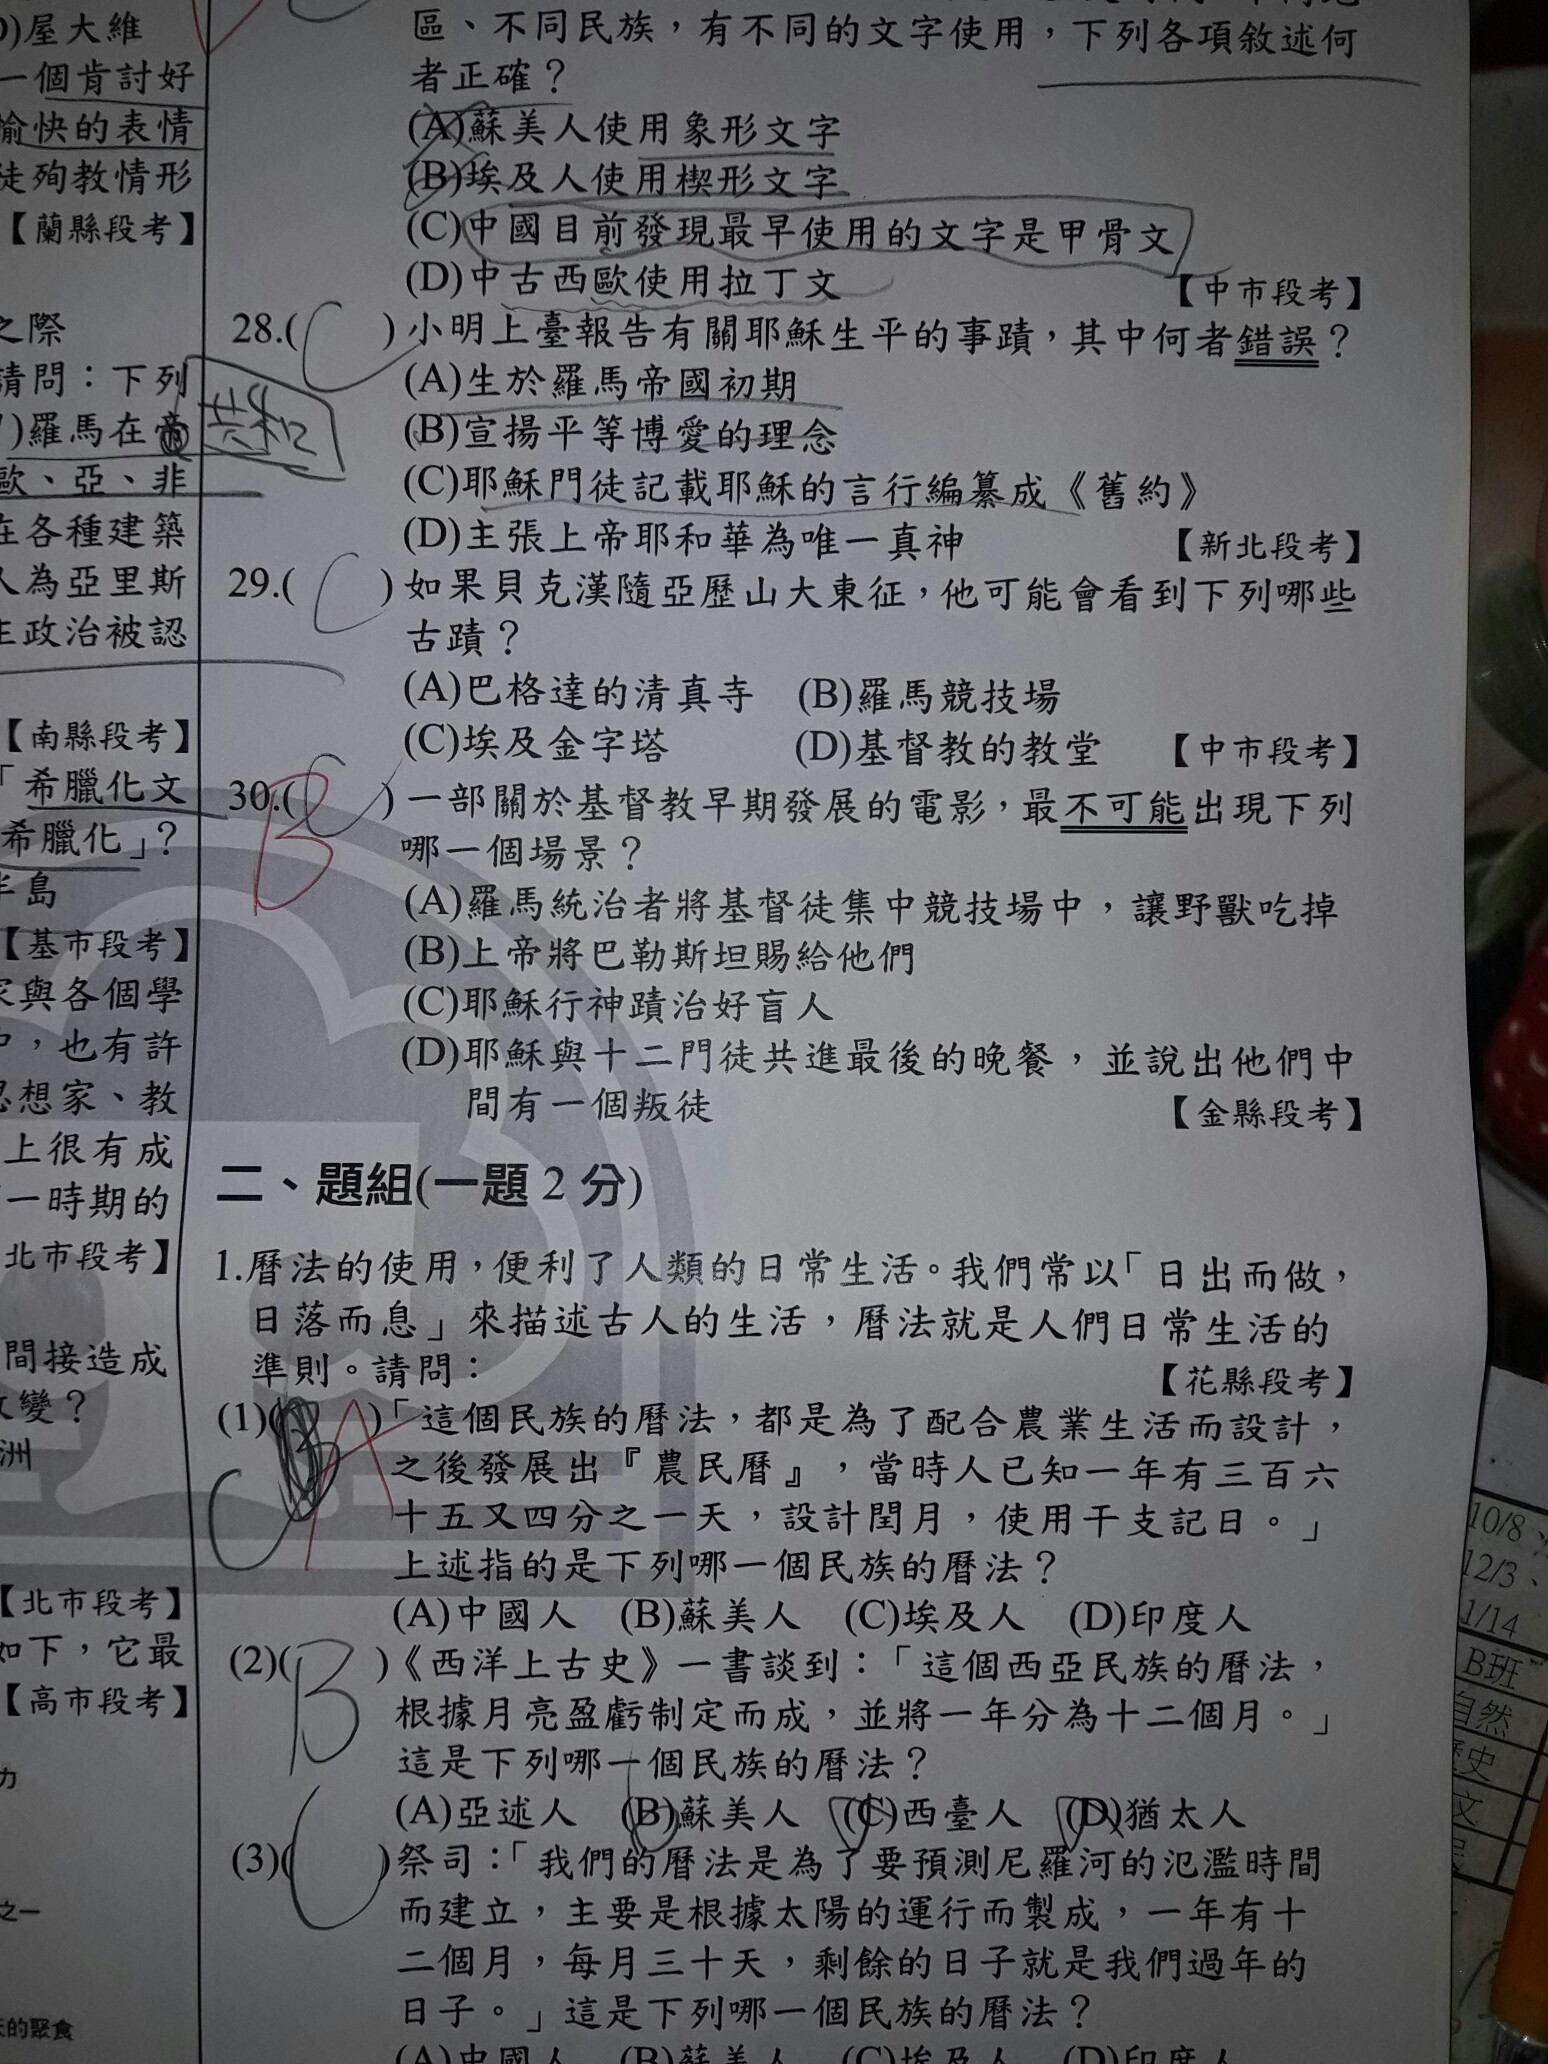 )屋大維
一個肯討好
愉快的表情
徒殉教情形
【蘭縣段考】
之際
請問：下列
)羅馬在帝
共和
歐、亞、非
在各種建築
人為亞里斯
主政治被認
【南縣段考】
「希臘化文
希臘化」？
半島
【基市段考】
家與各個學
中，也有許
思想家、教
上很有成
一時期的
北市段考】
間接造成
改變？
洲
【北市段考】
如下，它最
【高市段考】
力
之一
的聚食
區、不同民族，有不同的文字使用，下列各項敘述何
者正確？
(A)蘇美人使用象形文字
(B)埃及人使用楔形文字
(C)中國目前發現最早使用的文字是甲骨文
(D)中古西歐使用拉丁文 【中市段考】
28.( C )小明上臺報告有關耶穌生平的事蹟，其中何者錯誤？
(A)生於羅馬帝國初期
(B)宣揚平等博愛的理念
(C)耶穌門徒記載耶穌的言行編纂成《舊約》
(D)主張上帝耶和華為唯一真神 【新北段考】
29.( C )如果貝克漢隨亞歷山大東征，他可能會看到下列哪些
古蹟？
(A)巴格達的清真寺 (B)羅馬競技場
(C)埃及金字塔 (D)基督教的教堂 【中市段考】
30.( C )一部關於基督教早期發展的電影，最不可能出現下列
B
哪一個場景？
(A)羅馬統治者將基督徒集中競技場中，讓野獸吃掉
(B)上帝將巴勒斯坦賜給他們
(C)耶穌行神蹟治好盲人
(D)耶穌與十二門徒共進最後的晚餐，並說出他們中
間有一個叛徒 【金縣段考】
二、題組(一題2分)
1.曆法的使用，便利了人類的日常生活。我們常以「日出而做，
日落而息」來描述古人的生活，曆法就是人們日常生活的
準則。請問： 【花縣段考】
(1)( B )「這個民族的曆法，都是為了配合農業生活而設計，
C A
之後發展出『農民曆』，當時人已知一年有三百六
十五又四分之一天，設計閏月，使用干支記日。」
上述指的是下列哪一個民族的曆法？
(A)中國人 (B)蘇美人 (C)埃及人 (D)印度人
(2)( B )《西洋上古史》一書談到：「這個西亞民族的曆法，
根據月亮盈虧制定而成，並將一年分為十二個月。」
這是下列哪一個民族的曆法？
(A)亞述人 (B)蘇美人 (C)西臺人 (D)猶太人
(3)( C )祭司：「我們的曆法是為了要預測尼羅河的氾濫時間
而建立，主要是根據太陽的運行而製成，一年有十
二個月，每月三十天，剩餘的日子就是我們過年的
日子。」這是下列哪一個民族的曆法？
(A)中國人 (B)蘇美人 (C)埃及人 (D)印度人
10/8
12/3、
1/14
B班
自然
歷史
文